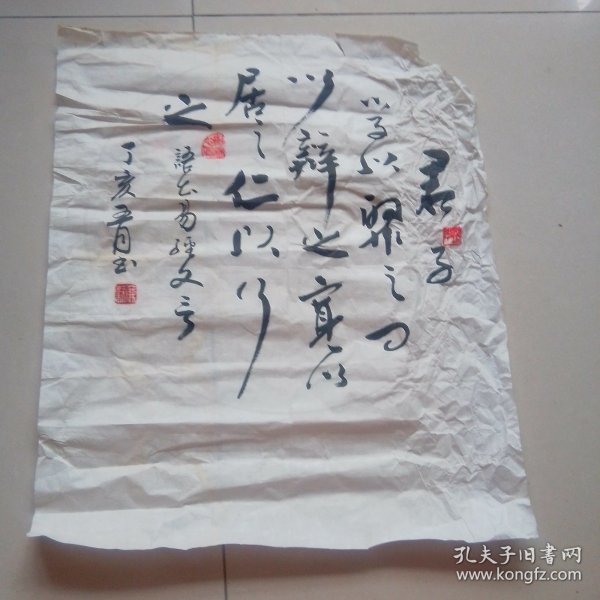 君子
学以聚之问
以辩之宽以
居之仁以行
之
語出易經文言
丁亥五月书
孔夫子旧书网
www.kongfz.com